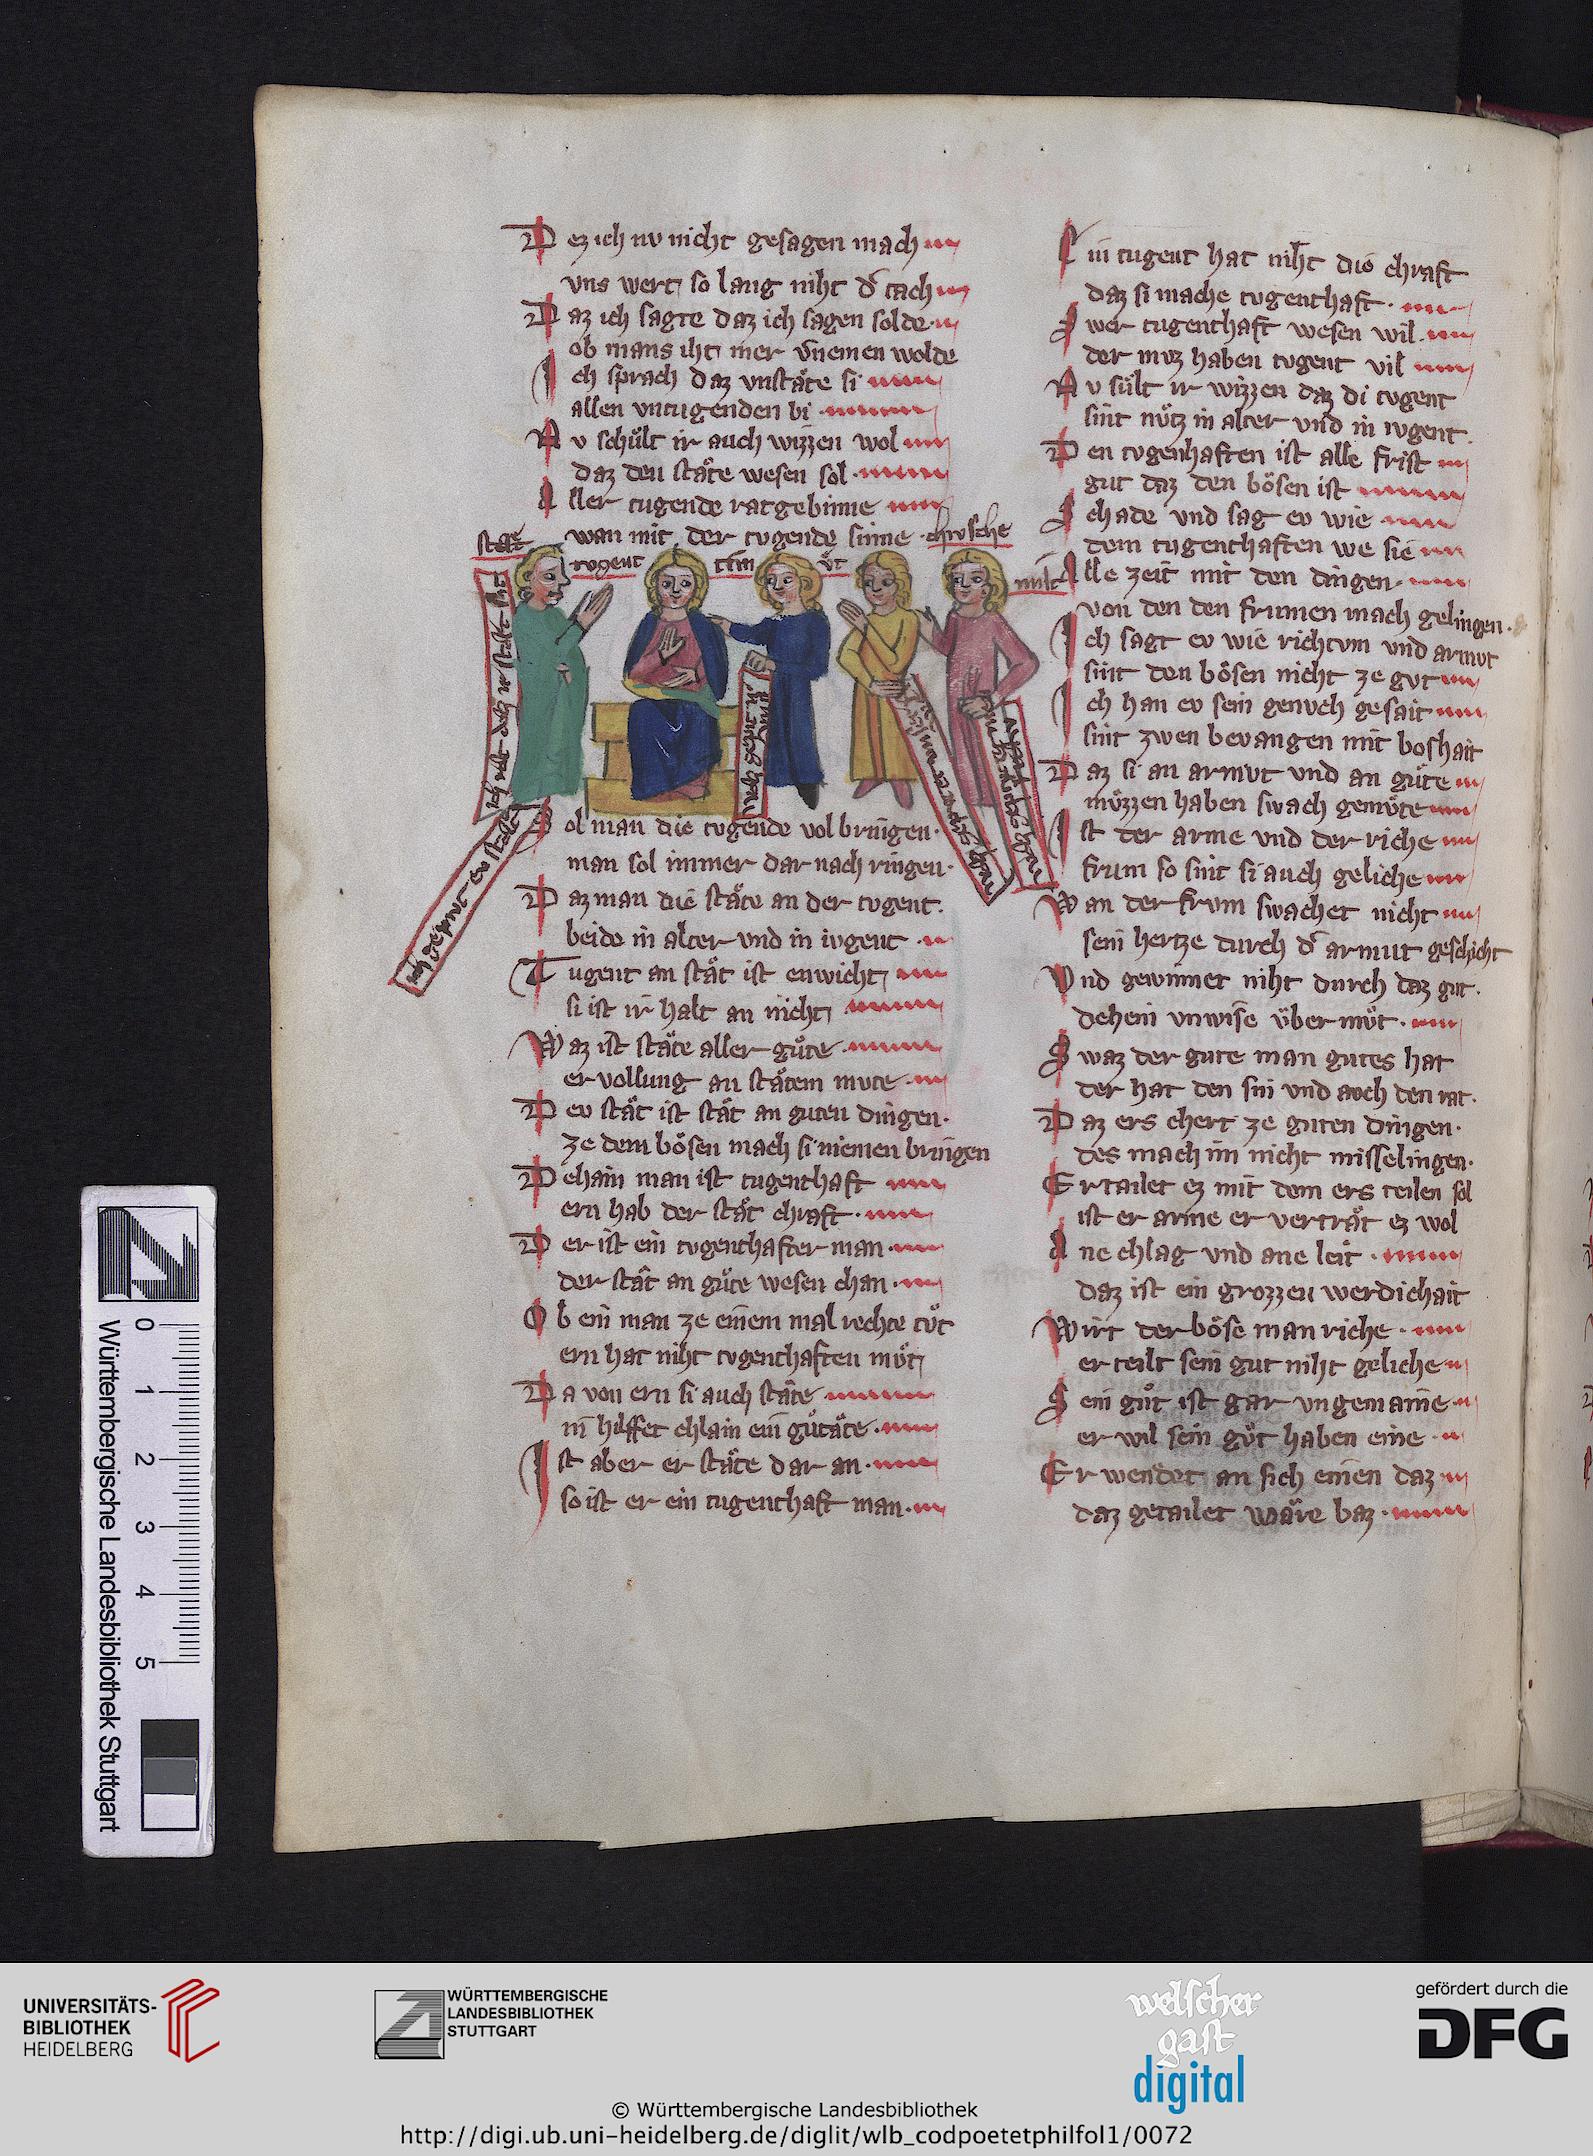 Dez ich nv nicht gesagen mach
vns wert so lang niht dˢ tach
Daz ich sagte daz ich sagen solde
ob mans iht mer v̄nemen wolde
Ich sprach daz vnstäte si
allen vntugenden bi
Nv schült ir auch wizzen wol
daz deu stäte wesen sol
Aller tugende ratgebinne
wan mit der tvgende sinne
chvsche
stät
tvgent
milt
Sol man die tvgende vol bringen
man sol immer dar nach ringen
Daz man die stäte an der tvgent
beide in alter vnd in ivgent
Tugent an stät ist enwicht
si ist ir halt an nicht
Waz ist stäte aller güte
er vollung an stätem mvte
Dev stät ist stät an guten dingen
ze dem bösen mach si niemen bringen
Dehain man ist tugenthaft
ern hab der stät chraft
Der ist ein tvgenthafter man
der stät an güte wesen chan
Ob ein man ze einem mal rechte tv̊t
ern hat niht tvgenthaften mv̊t
Da von ern si auch stäte
in hilffet chlain ein gůtäte
Ist aber er stäte dar an
so ist er ein tugenthaft man
Ein tugent hat niht die chraft
daz si mache tvgenthaft
Swer tugenthaft wesen wil
der mvz haben tvgent vil
Nv sült ir wizzen daz di tvgent
sint nütz in alter vnd in ivgent
Den tvgenhaften ist alle frist
gut daz den bösen ist
Schade vnd sag ev wie
dem tvgenthaften we sie
Alle zeit mit den dingen
von den den frumen mach gelingen
Ich sagt ev wie richtvm vnd armvt
sint den bösen nicht ze gvt
Ich han ev sein genvch gesait
sint zwen bevangen mit boshait
Daz si an armvt vnd an güte
müzzen haben swach gemüte
Ist der arme vnd der riche
frum so sint si auch geliche
Wan der frvm swachet nicht
sein hertze durch dˢ armut geschicht
Vnd gewinnet niht durch daz gut
dehein vnwise über mv̊t
Swaz der gute man gutes hat
der hat den sin vnd avch den rat
Daz ers chert ze guten dingen
des mach im nicht misselingen
Er tailet ez mit dem ers teilen sol
ist er arme er verträt ez wol
Ane chlag vnd ane leit
daz ist ein grozzen werdichait
Wirt der böse man riche
er teilt sein gut niht geliche
Sein gůt ist gar vngemaine
er wil sein gůt haben eine
Er wendet an sich einen daz
daz getailet wäre baz
Württembergische Landesbibliothek Stuttgart
0
1
2
3
4
5
UNIVERSITÄTS-
BIBLIOTHEK
HEIDELBERG
WÜRTTEMBERGISCHE
LANDESBIBLIOTHEK
STUTTGART
welscher
gast
digital
gefördert durch die
DFG
© Württembergische Landesbibliothek
http://digi.ub.uni-heidelberg.de/diglit/wlb_codpoetetphilfol1/0072